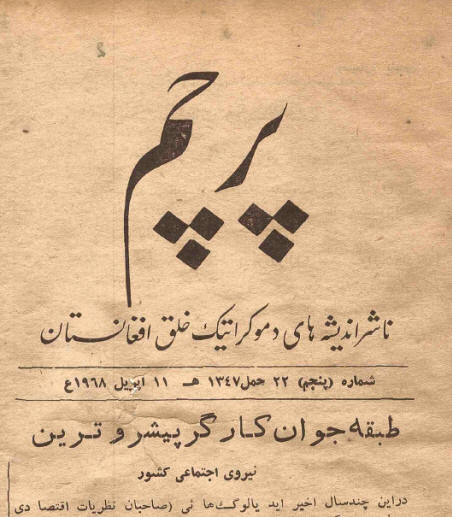 پرچم
ناشر اندیشه های دموکراتیک خلق افغانستان
شماره (پنجم) ۲۲ حمل ۱۳۴۷ هـ ۱۱ اپریل ۱۹۶۸ع
طبقه جوان کارگر پیشرو ترین
نیروی اجتماعی کشور
دراین چندسال اخیر اید یالوگ‌ها ئی (صاحبان نظریات اقتصا دی